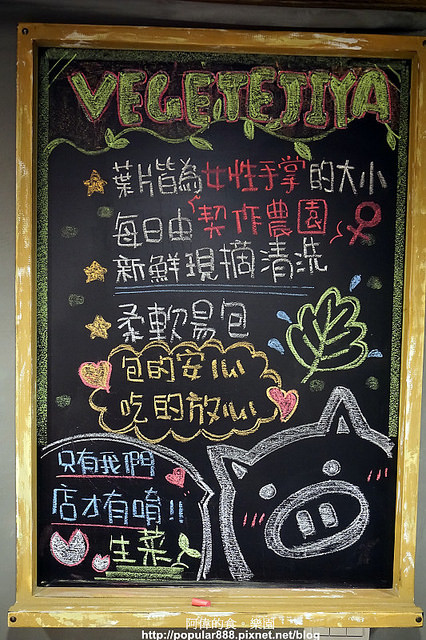 VEGETEJIYA
葉片皆為女性手掌的大小
每日由契作農園
新鮮現摘清洗
柔軟易包
包的安心
吃的放心
只有我們
店才有唷!!
生菜
阿偉的食。樂園
http://popular888.pixnet.net/blog